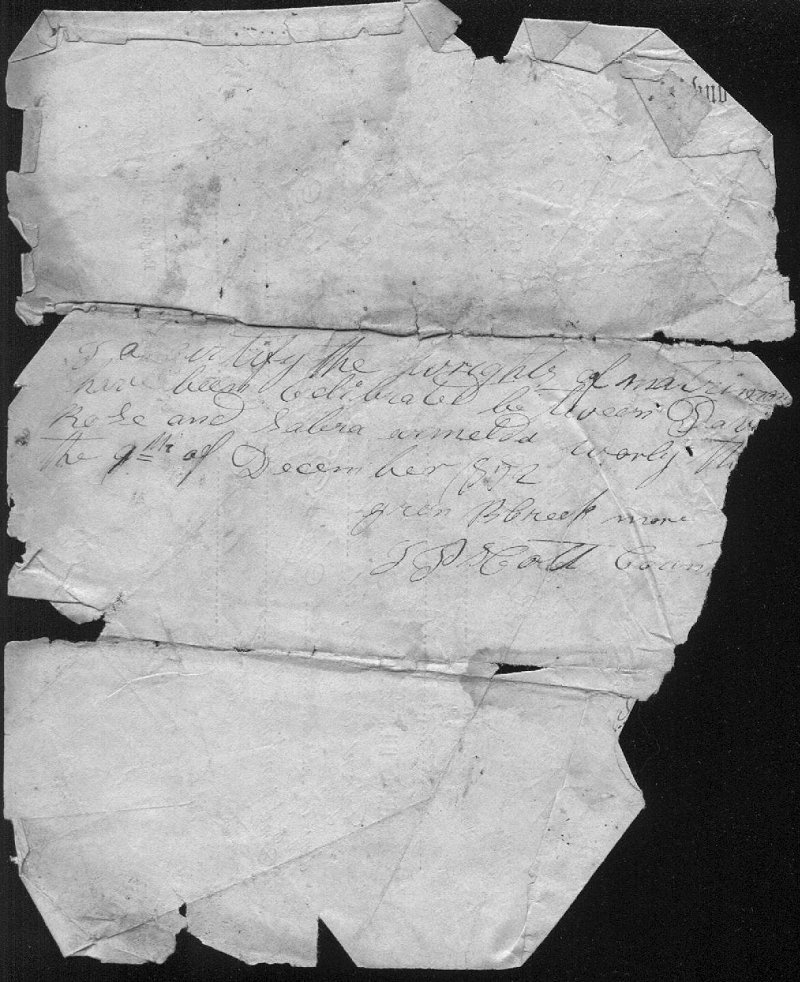 I a certify the wrights of matrimon
have been Celibrated be tween Dav
Rose and Sabra armelda worly th
the 9th of December 1872
gren B Creek more
J P Scott Coun